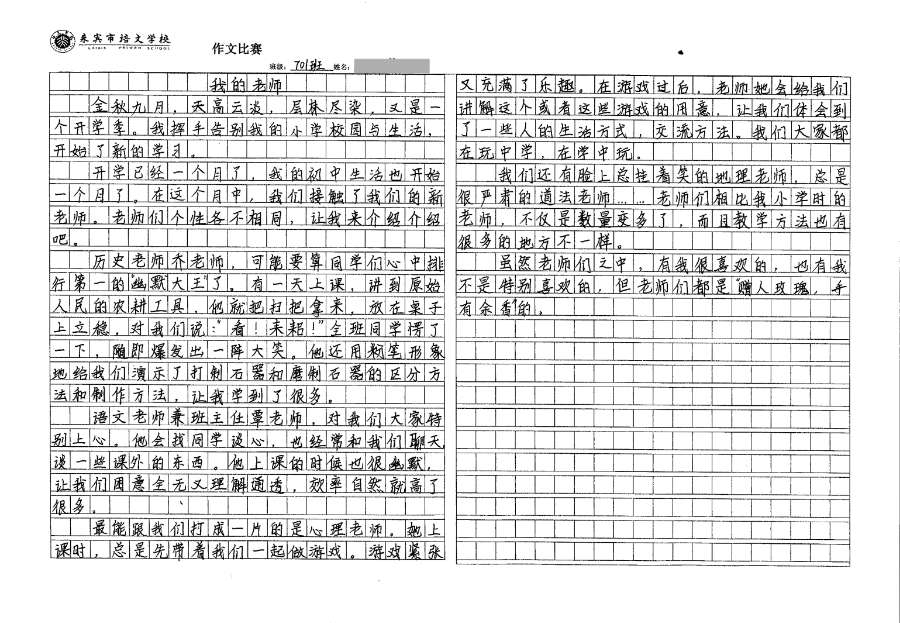 来宾市培文学校
LAIBIN PEIWEN SCHOOL
作文比赛
班级：701班 姓名：
我的老师
金秋九月，天高云淡，层林尽染，又是一
个开学季。我挥手告别我的小学校园与生活，
开始了新的学习。
开学已经一个月了，我的初中生活也开始
一个月了。在这个月中，我们接触了我们的新
老师。老师们个性各不相同，让我来介绍介绍
吧。
历史老师乔老师，可能要算同学们心中排
行第一的“幽默大王”了。有一天上课，讲到原始
人民的农耕工具，他就把扫把拿来，放在桌子
上立稳，对我们说：“看！耒耜！”全班同学愣了
一下，随即爆发出一阵大笑。他还用粉笔形象
地给我们演示了打制石器和磨制石器的区分方
法和制作方法，让我学到了很多。
语文老师兼班主任覃老师，对我们大家特
别上心。他会找同学谈心，也经常和我们聊天
谈一些课外的东西。他上课的时候也很幽默，
让我们困意全无又理解通透，效率自然就高了
很多。
最能跟我们打成一片的是心理老师。她上
课时，总是先带着我们一起做游戏。游戏紧张
又充满了乐趣。在游戏过后，老师她会给我们
讲解这个或者这些游戏的用意，让我们体会到
了一些人的生活方式，交流方法。我们大家都
在玩中学，在学中玩。
我们还有脸上总挂着笑的地理老师，总是
很严肃的道法老师……老师们相比我小学时的
老师，不仅是数量变多了，而且教学方法也有
很多的地方不一样。
虽然老师们之中，有我很喜欢的，也有我
不是特别喜欢的，但老师们都是“赠人玫瑰，手
有余香”的。